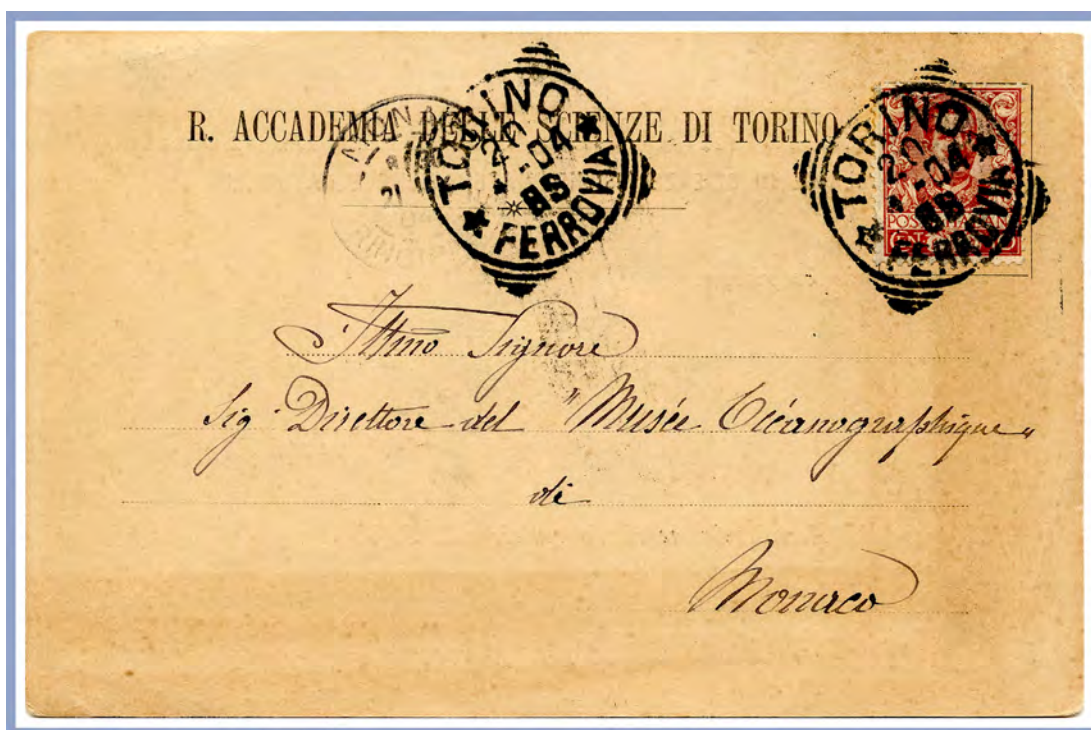 R. ACCADEMIA DELLE SCIENZE DI TORINO
TORINO
20
-04
8S
FERROVIA
TORINO
20
-04
8S
FERROVIA
21
Illmo Signore
Sig. Direttore del "Musée Océanographique"
di
Monaco